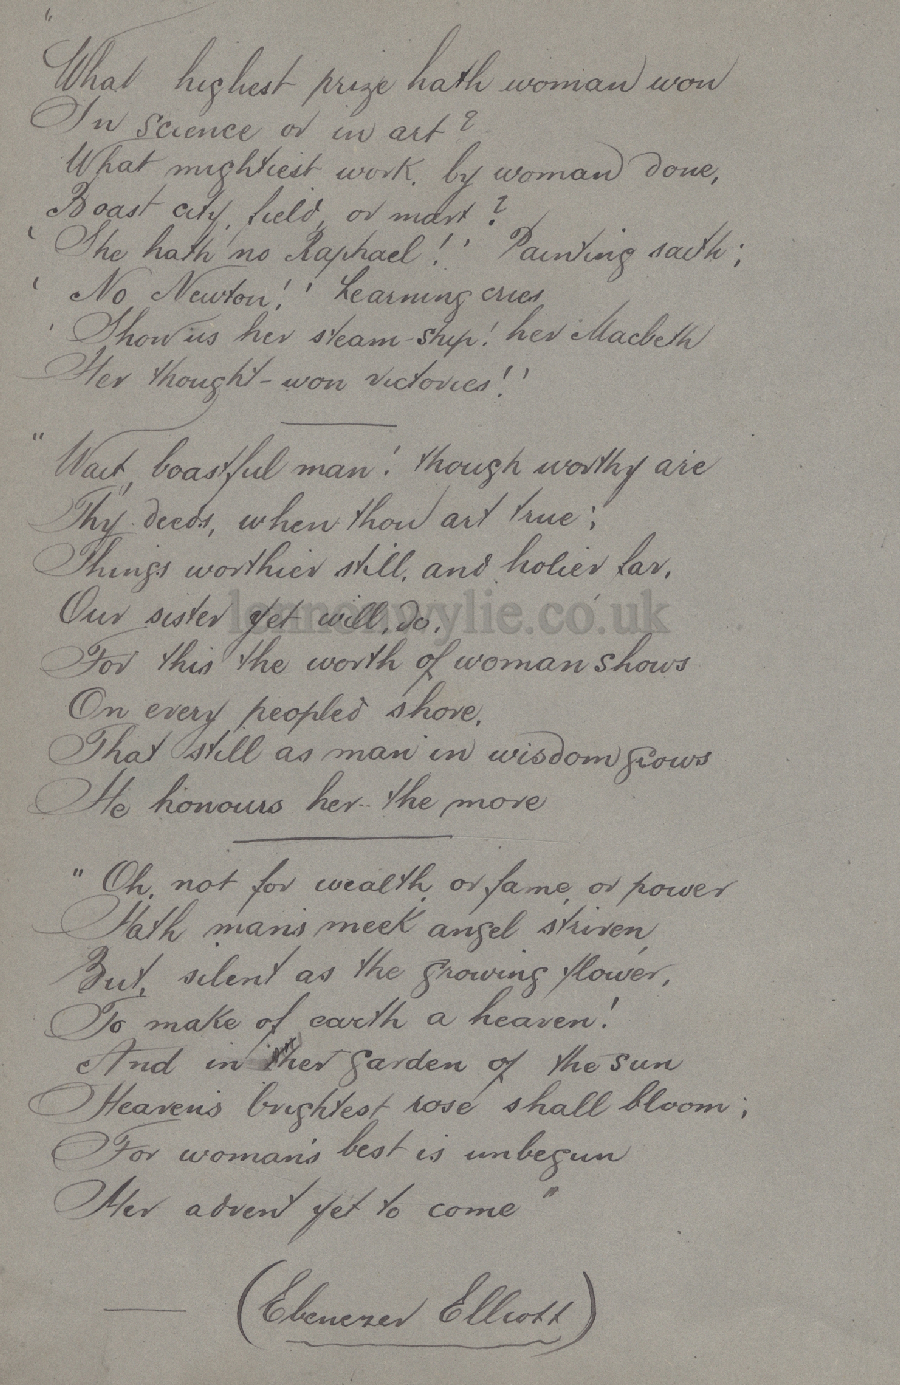 "
What highest prize hath woman won
In science or in art?
What mightiest work, by woman done,
Boast city, field, or mart?
'She hath no Raphael!' Painting saith;
'No Newton!' Learning cries,
'Show us her steam-ship! her Macbeth
Her thought-won victories!'
"Wait, boastful man! though worthy are
Thy deeds, when thou art true;
Things worthier still, and holier far,
Our sister yet will do,
lennonwylie.co.uk
For this the worth of woman shows
On every peopled shore,
That still as man in wisdom grows
He honours her the more
"Oh, not for wealth, or fame, or power
Hath man's meek angel striven,
But, silent as the growing flower,
To make of earth a heaven!
And in her garden of the sun
Heaven's brightest rose shall bloom;
For woman's best is unbegun
Her advent yet to come"
(Ebenezer Elliott)